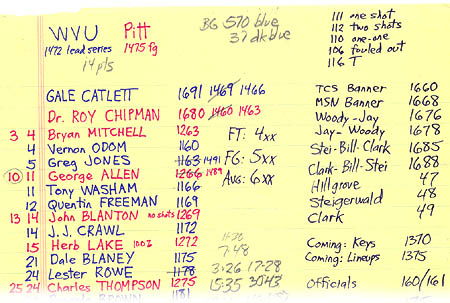 WVU Pitt BG 570 blue 111 one shot
1472 lead series 1475 fg 37 dk blue 112 two shots
14 pts 110 one-one
106 fouled out
116 T
GALE CATLETT 1691 1469 1466 TCS Banner 1660
Dr. ROY CHIPMAN 1680 1460 1463 MSN Banner 1668
3 4 Bryan MITCHELL 1263 FT: 4xx Woody-Jay 1676
4 Vernon ODOM 1160 Jay-Woody 1678
5 Greg JONES 1163 1491 FG: 5xx Stei-Bill-Clark 1685
10 11 George ALLEN 1266 1489 Avg: 6xx Clark-Bill-Stei 1688
11 Tony WASHAM 1166 Hillgrove 47
12 Quentin FREEMAN 1169 Steigerwald 48
13 14 John BLANTON no shots 1269 Clark 49
14 J.J. CRAWL 1172
15 Herb LAKE 100% 1272 7:48 Coming: Keys 1370
21 Dale BLANEY 1175 Coming: Lineups 1375
24 Lester ROWE 1178 3:26 17-28
25 24 Charles THOMPSON 1275 15:35 30-43 Officials 160/161
BROWN 1181